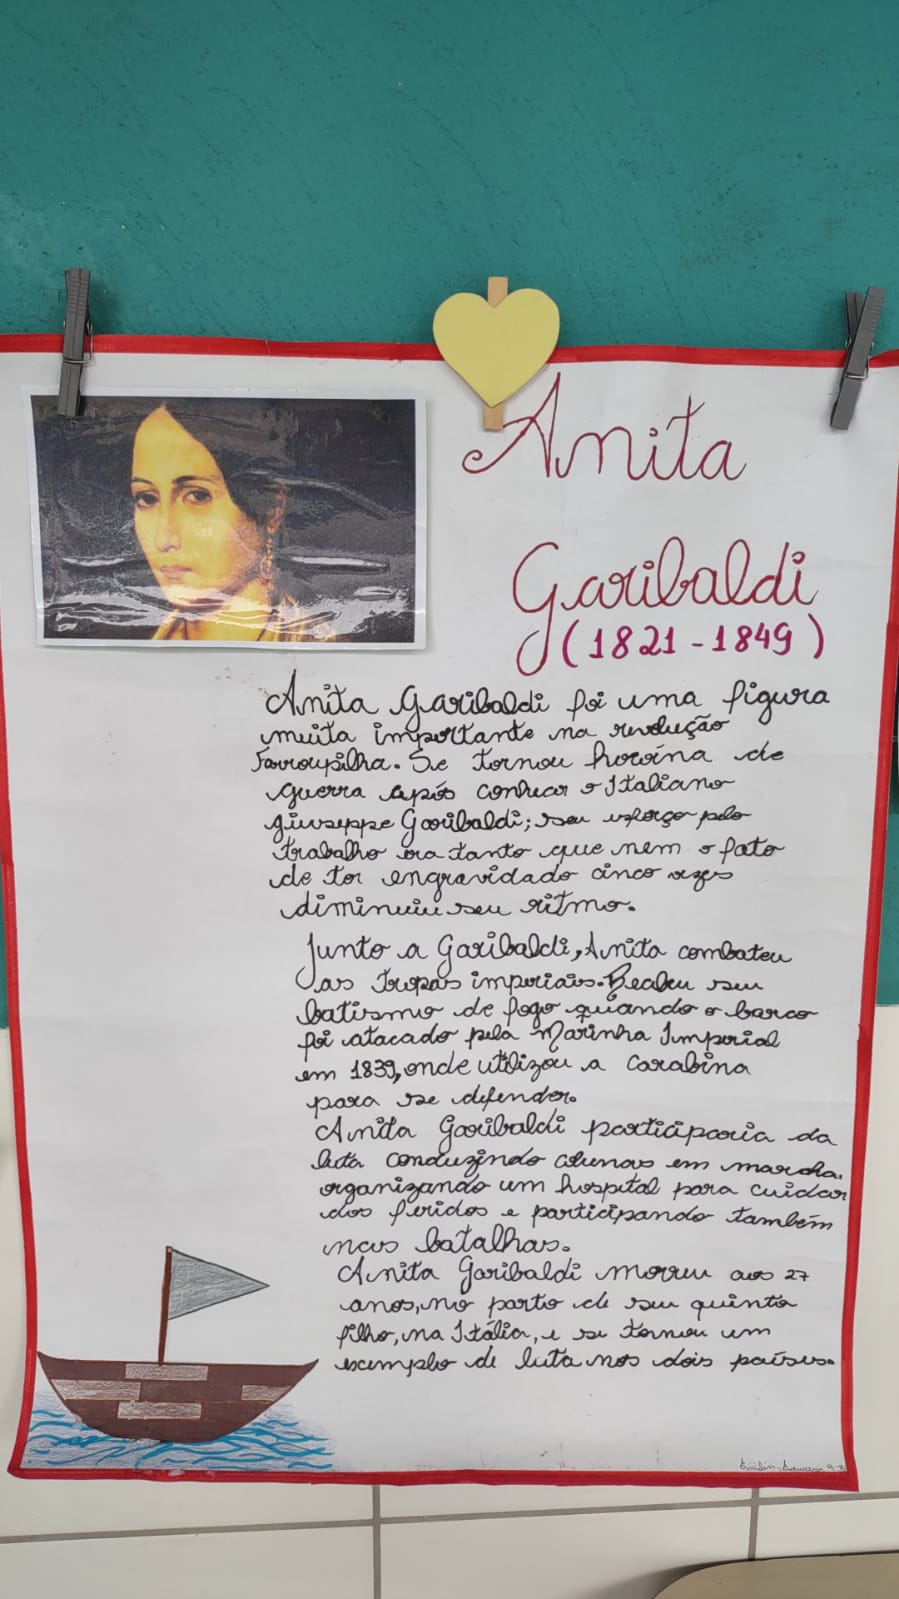 Anita
Garibaldi
(1821-1849)
Anita Garibaldi foi uma figura
muita importante na revolução
Farroupilha. Se tornou heroína de
guerra após conhecer o Italiano
Giuseppe Garibaldi; seu esforço pelo
trabalho era tanto que nem o fato
de ter engravidado cinco vezes
diminuiu seu ritmo.
Junto a Garibaldi, Anita combateu
as tropas imperiais. Recebeu seu
batismo de fogo quando o barco
foi atacado pela Marinha Imperial
em 1839, onde utilizou a carabina
para se defender.
Anita Garibaldi participaria da
luta conduzindo colunas em marcha.
organizando um hospital para cuidar
dos feridos e participando também
nas batalhas.
Anita Garibaldi morreu aos 27
anos, no parto de seu quinto
filho, na Itália, e se tornou um
exemplo de luta nos dois países.